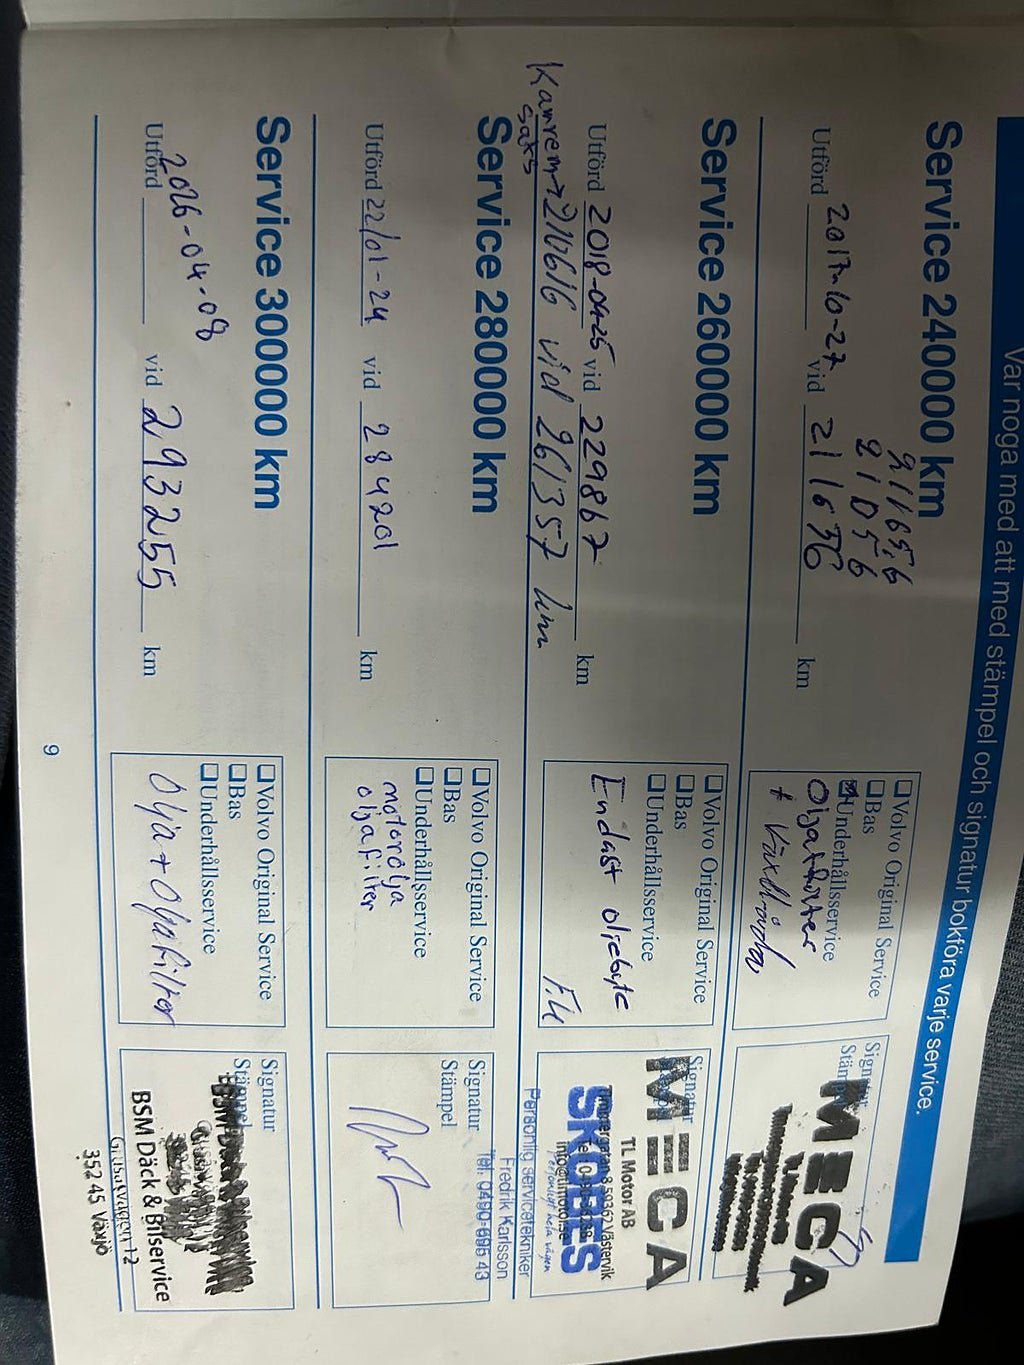 Var noga med att med stämpel och signatur bokföra varje service.
Service 240000 km
211656
21056
Utförd 2017-10-27 vid 211656 km
☐Volvo Original Service
☐Bas
☒Underhållsservice
Oljafilter
+
Signatur
Stämpel
MECA
Service 260000 km
Utförd 2018-04-25 vid 229867 km
Kamrem → 210616 vid 261357 km
sats
☐Volvo Original Service
☐Bas
☐Underhållsservice
Endast oljebyte
F.K
Signatur
MECA
TL Motor AB
8 59362 Västervik
info@tlmotor.se
SKOBES
Personlig servicetekniker
Fredrik Karlsson
Tel. 0490-695 43
Service 280000 km
Utförd 22/01-24 vid 284201 km
☐Volvo Original Service
☐Bas
☐Underhållsservice
motorolja
oljafilter
Signatur
Stämpel
Service 300000 km
Utförd 2026-04-08 vid 293255 km
☐Volvo Original Service
☐Bas
☐Underhållsservice
Olja + Oljafilter
Signatur
Stämpel
BSM Däck & Bilservice
12
352 45 Växjö
9